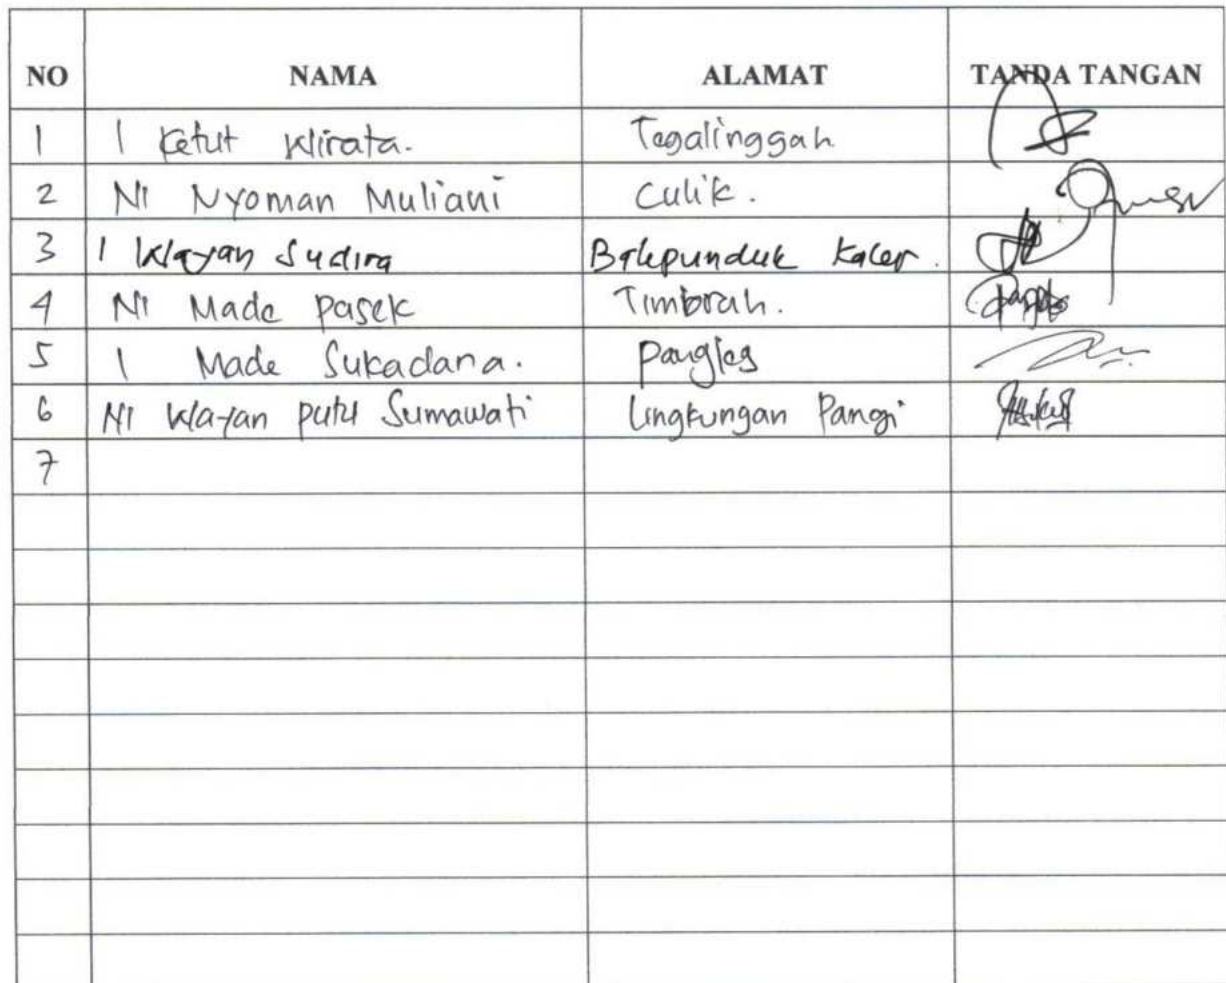 NO NAMA ALAMAT TANDA TANGAN
1 I Ketut Wirata. Tegalinggah
2 Ni Nyoman Muliani Culik.
3 I Wayan Sudira Balepunduk Kaler.
4 Ni Made Pasek Timbrah.
5 I Made Sukadana. Pangleg
6 Ni Wayan putu Sumawati Lingkungan Pangi
7